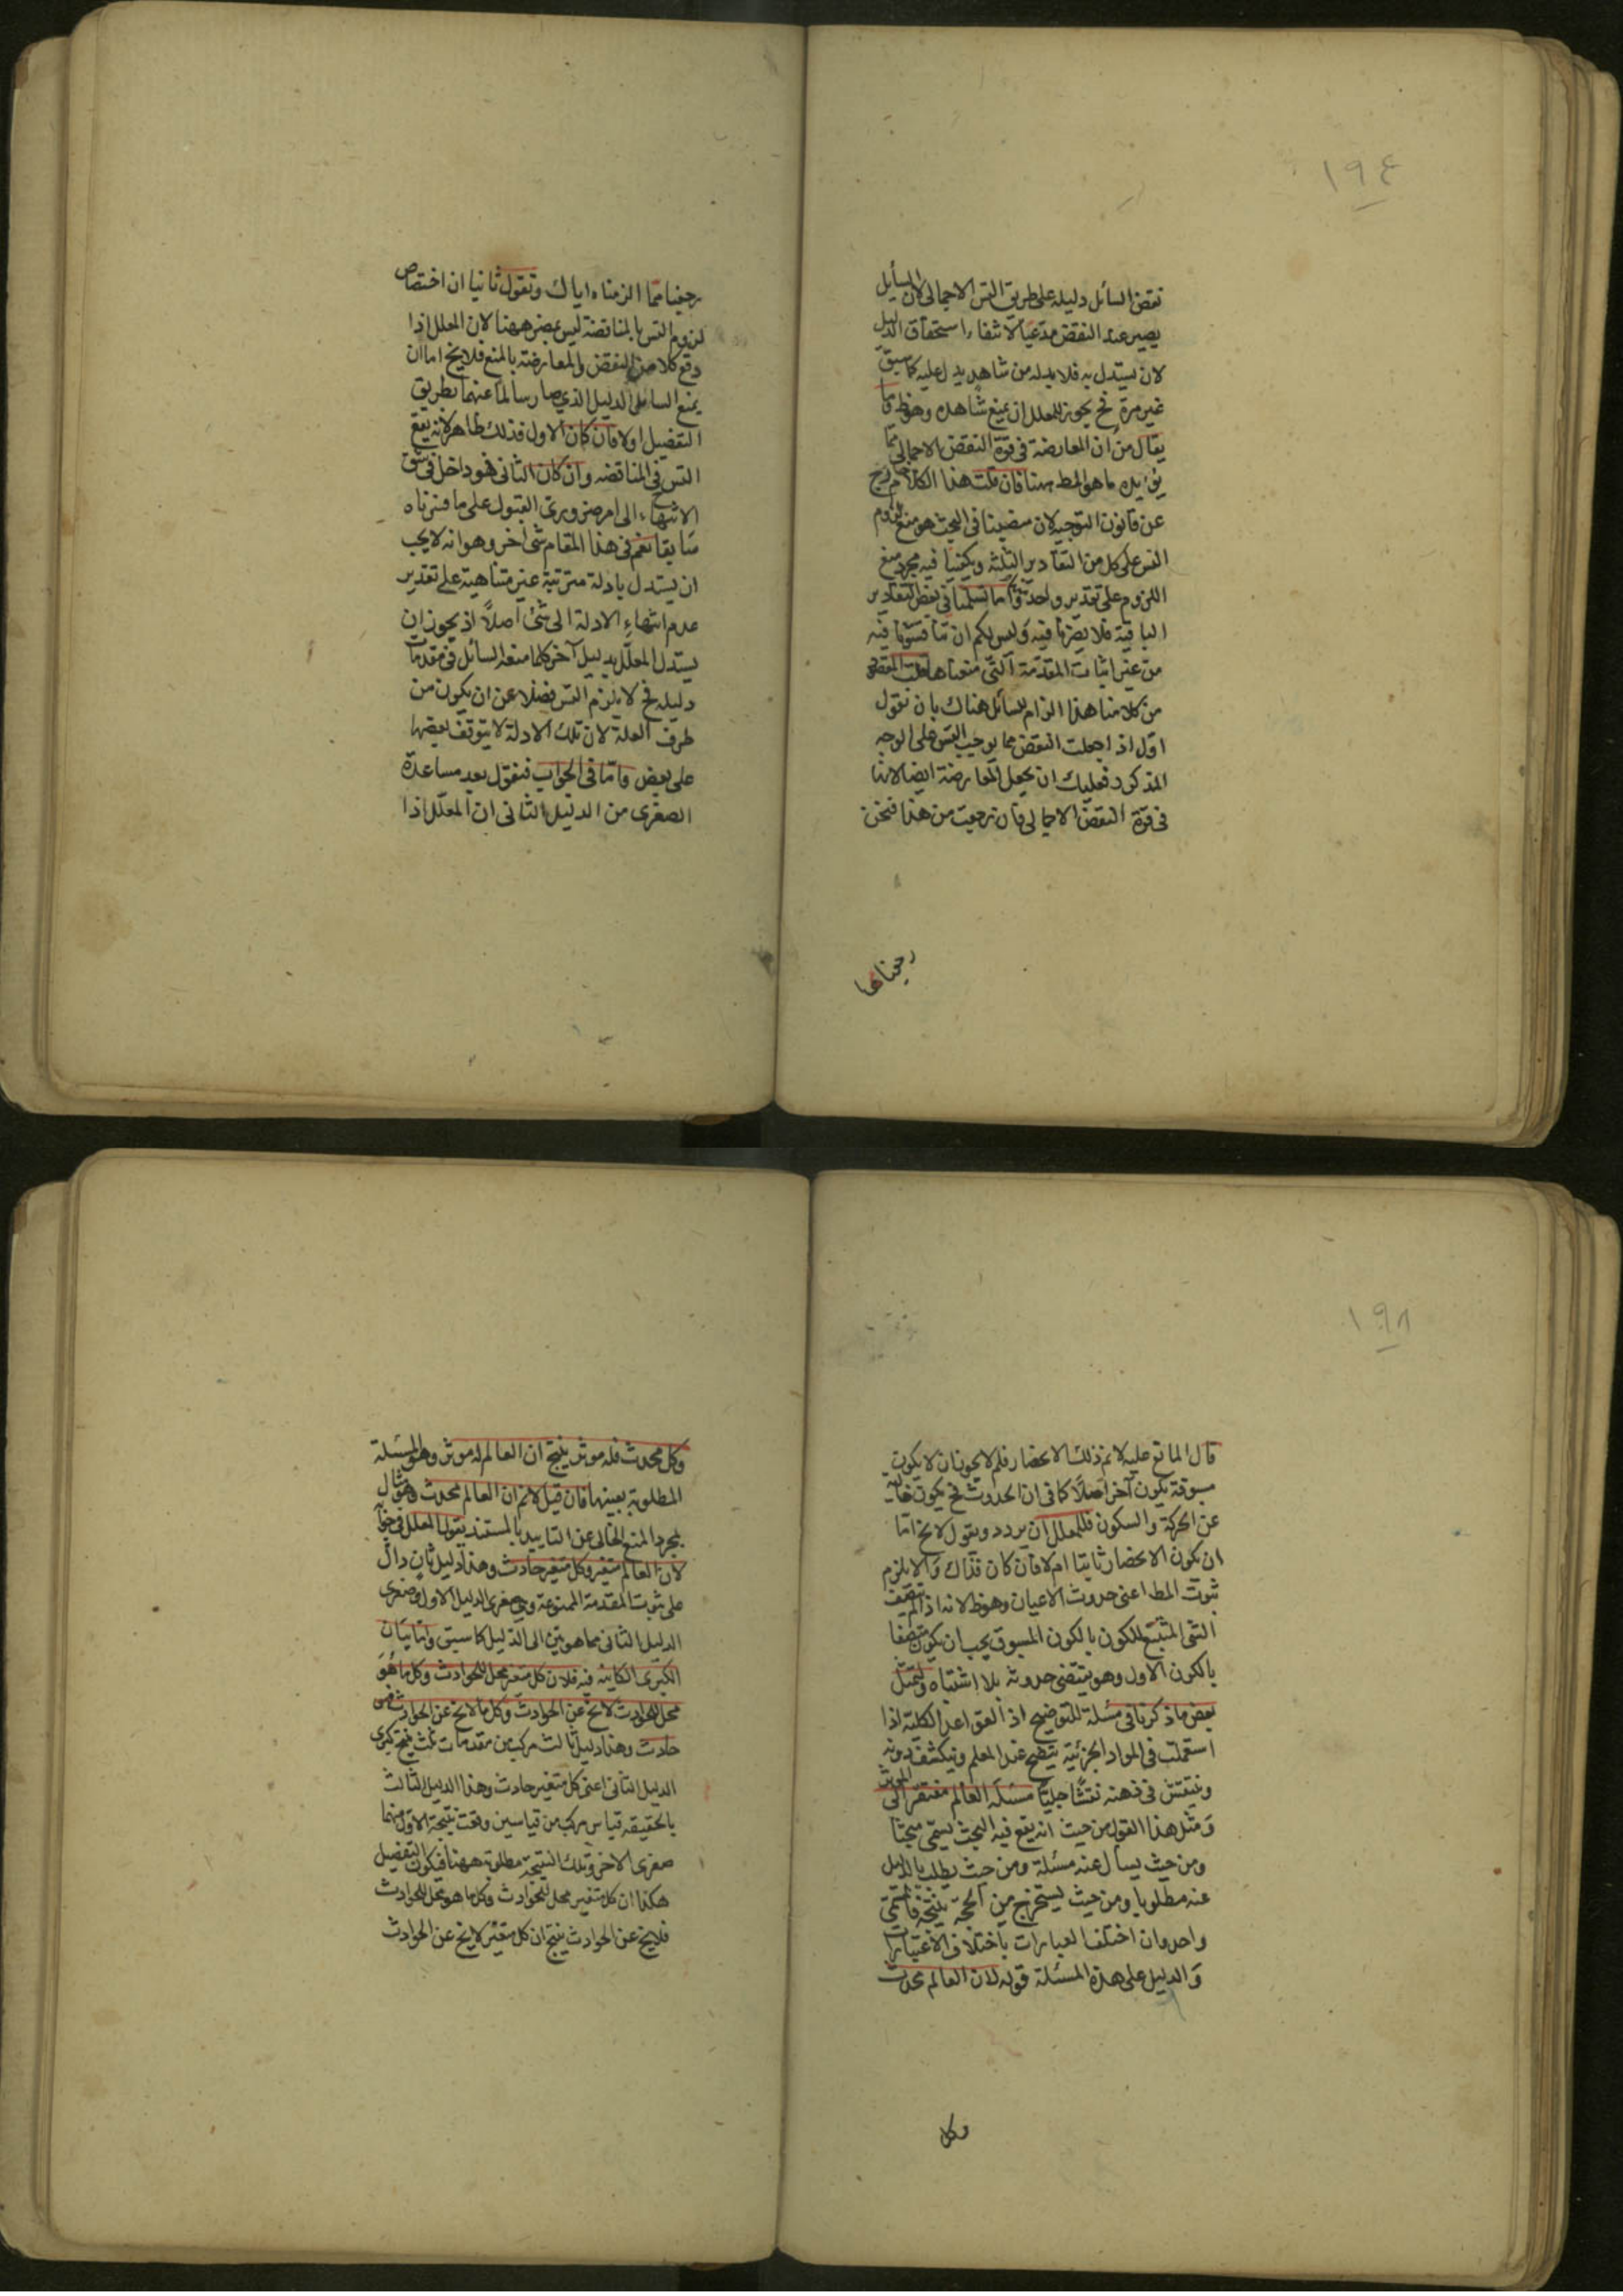 ١٩٤
نقض السائل دليله على طريق التس الاجمالى لان السائل
يصير عند النقض مدعيا لاثفاء استحقاق الدليل
لان يستدل به فلا بد له من شاهد يدل عليه كما سبق
غير مرة فح يجوز للمعلل ان يمنع شاهده وهو ظ وما
يقال من ان المعارضة فى قوة النقض الاجمالى مما
يؤيده ما هو المط ههنا فان قلت هذا الكلام خارج
عن قانون التوجيه لان منصبنا فى البحث هو منع لزوم
التس على كل من التقادير الثلثة ويكفينا فيه مجرد منع
اللزوم على تقدير واحد واما تسليمنا فى بعض التقادير
الباقية فلا يضرنا فيه وليس لكم ان تناقشونا فيه
من غير اثبات المقدمة التى منعناها قلت المقص
من كلامنا هذا الزام السائل هناك بان نقول
اول اذا جعلت النقض مما يوجب التس على الوجه
المذكور فعليك ان يجعل المعارضة ايضا لانها
فى قوة النقض الاجمالى فان رجعت من هذا فنحن
رجعنا مما
رجعنا مما الزمناه اياك ونقول ثانيا ان اختصاص
لزوم التس بالمناقضة ليس بمضر ههنا لان المعلل اذا
دفع كلا من النقض والمعارضة بالمنع فلا يخ اما ان
يمنع السائل الدليل الذى صار سالما عنهما بطريق
التفصيل اولا فان كان الاول فذلك ظاهر لانه يقع
التس فى المناقضة وان كان الثانى فهو داخل فى شق
الانتهاء الى امر ضرورى القبول على ما قررناه
سابقا نعم فى هذا المقام شئ آخر وهو انه لا يجب
ان يستدل بادلة مترتبة غير متناهية على تقدير
عدم انتهاء الادلة الى شئ اصلاً اذ يجوز ان
يستدل المعلل بدليل آخر كلما منعه السائل فى مقدمات
دليله فح لا يلزم التس فضلا عن ان يكون من
طرف العلة لان تلك الادلة لا يتوقف بعضها
على بعض واما فى الجواب فنقول بعد مساعدة
الصغرى من الدليل الثانى ان المعلل اذا
١٩٨
قال المانع عليه لانم ذلك الانحصار فلم لا يجوز ان لا يكون
مسبوقة بكون آخر اصلاً كما فى ان الحدوث فح يكون خاليه
عن الحركة والسكون فللمعلل ان يردد ويقول لا يخ اما
ان يكون الانحصار ثابتا ام لا فان كان فذاك والا يلزم
ثبوت المط اعنى حدوث الاعيان وهو ظ لانه اذا لم يتصف
الشئ المتبع للكون بالكون المسبوق يجب ان يكون متصفا
بالكون الاول وهو يقتضى حدوثه بلا اشتباه ولنمثل
بعض ما ذكرنا فى مسئلة للتوضيح اذ القواعد الكلية اذا
استعملت فى المواد الجزئية يتضح عند المعلم وينكشف دونه
وينتقش فى ذهنه نقشا جليا مسئلة العالم مفتقر الى المؤثر
ومثل هذا القول من حيث انه يقع فيه البحث يسمى مبحثا
ومن حيث يسأل عنه مسئلة ومن حيث يطلب بالدليل
عنه مطلوبا ومن حيث يستخرج من الحجة نتيجة فالمسمى
واحد وان اختلف العبارات باختلاف الاعتبارات
والدليل على هذه المسئلة قوله لان العالم محدث
وكل
وكل محدث فله موثر ينتج ان العالم له موثر وهو المسئلة
المطلوبة بعينها فان قيل لانم ان العالم محدث وهو مثال
لمجرد المنع الخالى عن التاييد بالمستند يقول المعلل فى جوابه
لان العالم متغير وكل متغير حادث وهذا دليل ثان دال
على ثبوت المقدمة الممنوعة وهى صغرى الدليل الاول وصغرى
الدليل الثانى مما هو بين الى الدليل كما سبق واما بيان
الكبرى الكاينة فيه فلان كل متغير محل للحوادث وكل ما هو
محل للحوادث لا يخ عن الحوادث وكل ما لا يخ عن الحوادث فهو
حادث وهذا دليل ثالث مركب من مقدمات ثلث ينتج كبرى
الدليل الثانى اعنى كل متغير حادث وهذا الدليل الثالث
بالحقيقة قياس مركب من قياسين وقعت نتيجة الاول منهما
صغرى الاخر وتلك النتيجة مطلوبة ههنا فيكون التفصيل
هكذا ان كل متغير محل للحوادث وكل ما هو محل للحوادث
فلا يخ عن الحوادث ينتج ان كل متغير لا يخ عن الحوادث